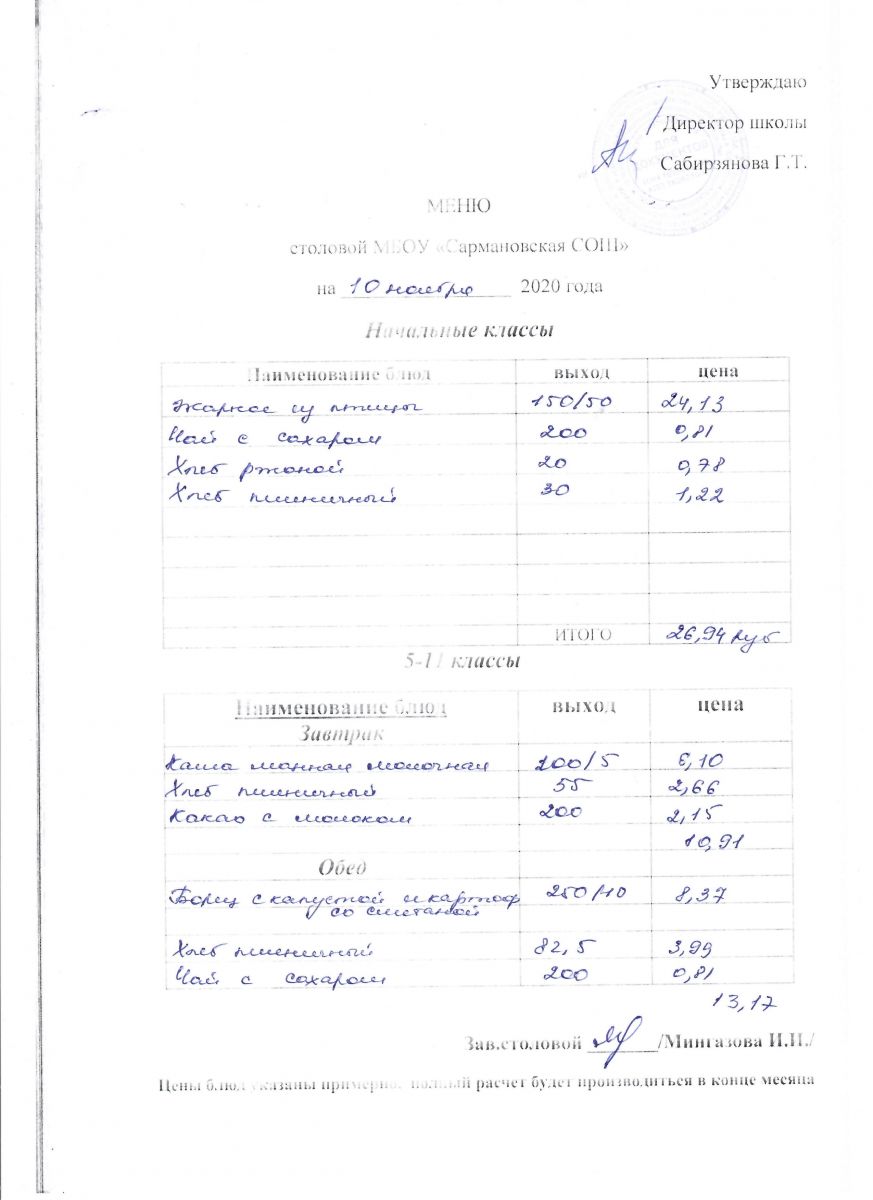 Утверждаю
Директор школы
Сабирзянова Г.Т.
ДЛЯ
ДОКУМЕНТОВ
МЕНЮ
столовой МБОУ «Сармановская СОШ»
на 10 ноября 2020 года
Начальные классы
Наименование блюд выход цена
Жаркое из птицы 150/50 24,13
Чай с сахаром 200 0,81
Хлеб ржаной 20 0,78
Хлеб пшеничный 30 1,22
ИТОГО 26,94 руб
5-11 классы
Наименование блюд выход цена
Завтрак
Каша манная молочная 200/5 6,10
Хлеб пшеничный 55 2,66
Какао с молоком 200 2,15
10,91
Обед
Борщ с капустой и картоф 250/10 8,37
со сметаной
Хлеб пшеничный 82,5 3,99
Чай с сахаром 200 0,81
13,17
Зав.столовой /Мингазова И.И./
Цены блюд указаны примерно, полный расчет будет производиться в конце месяца